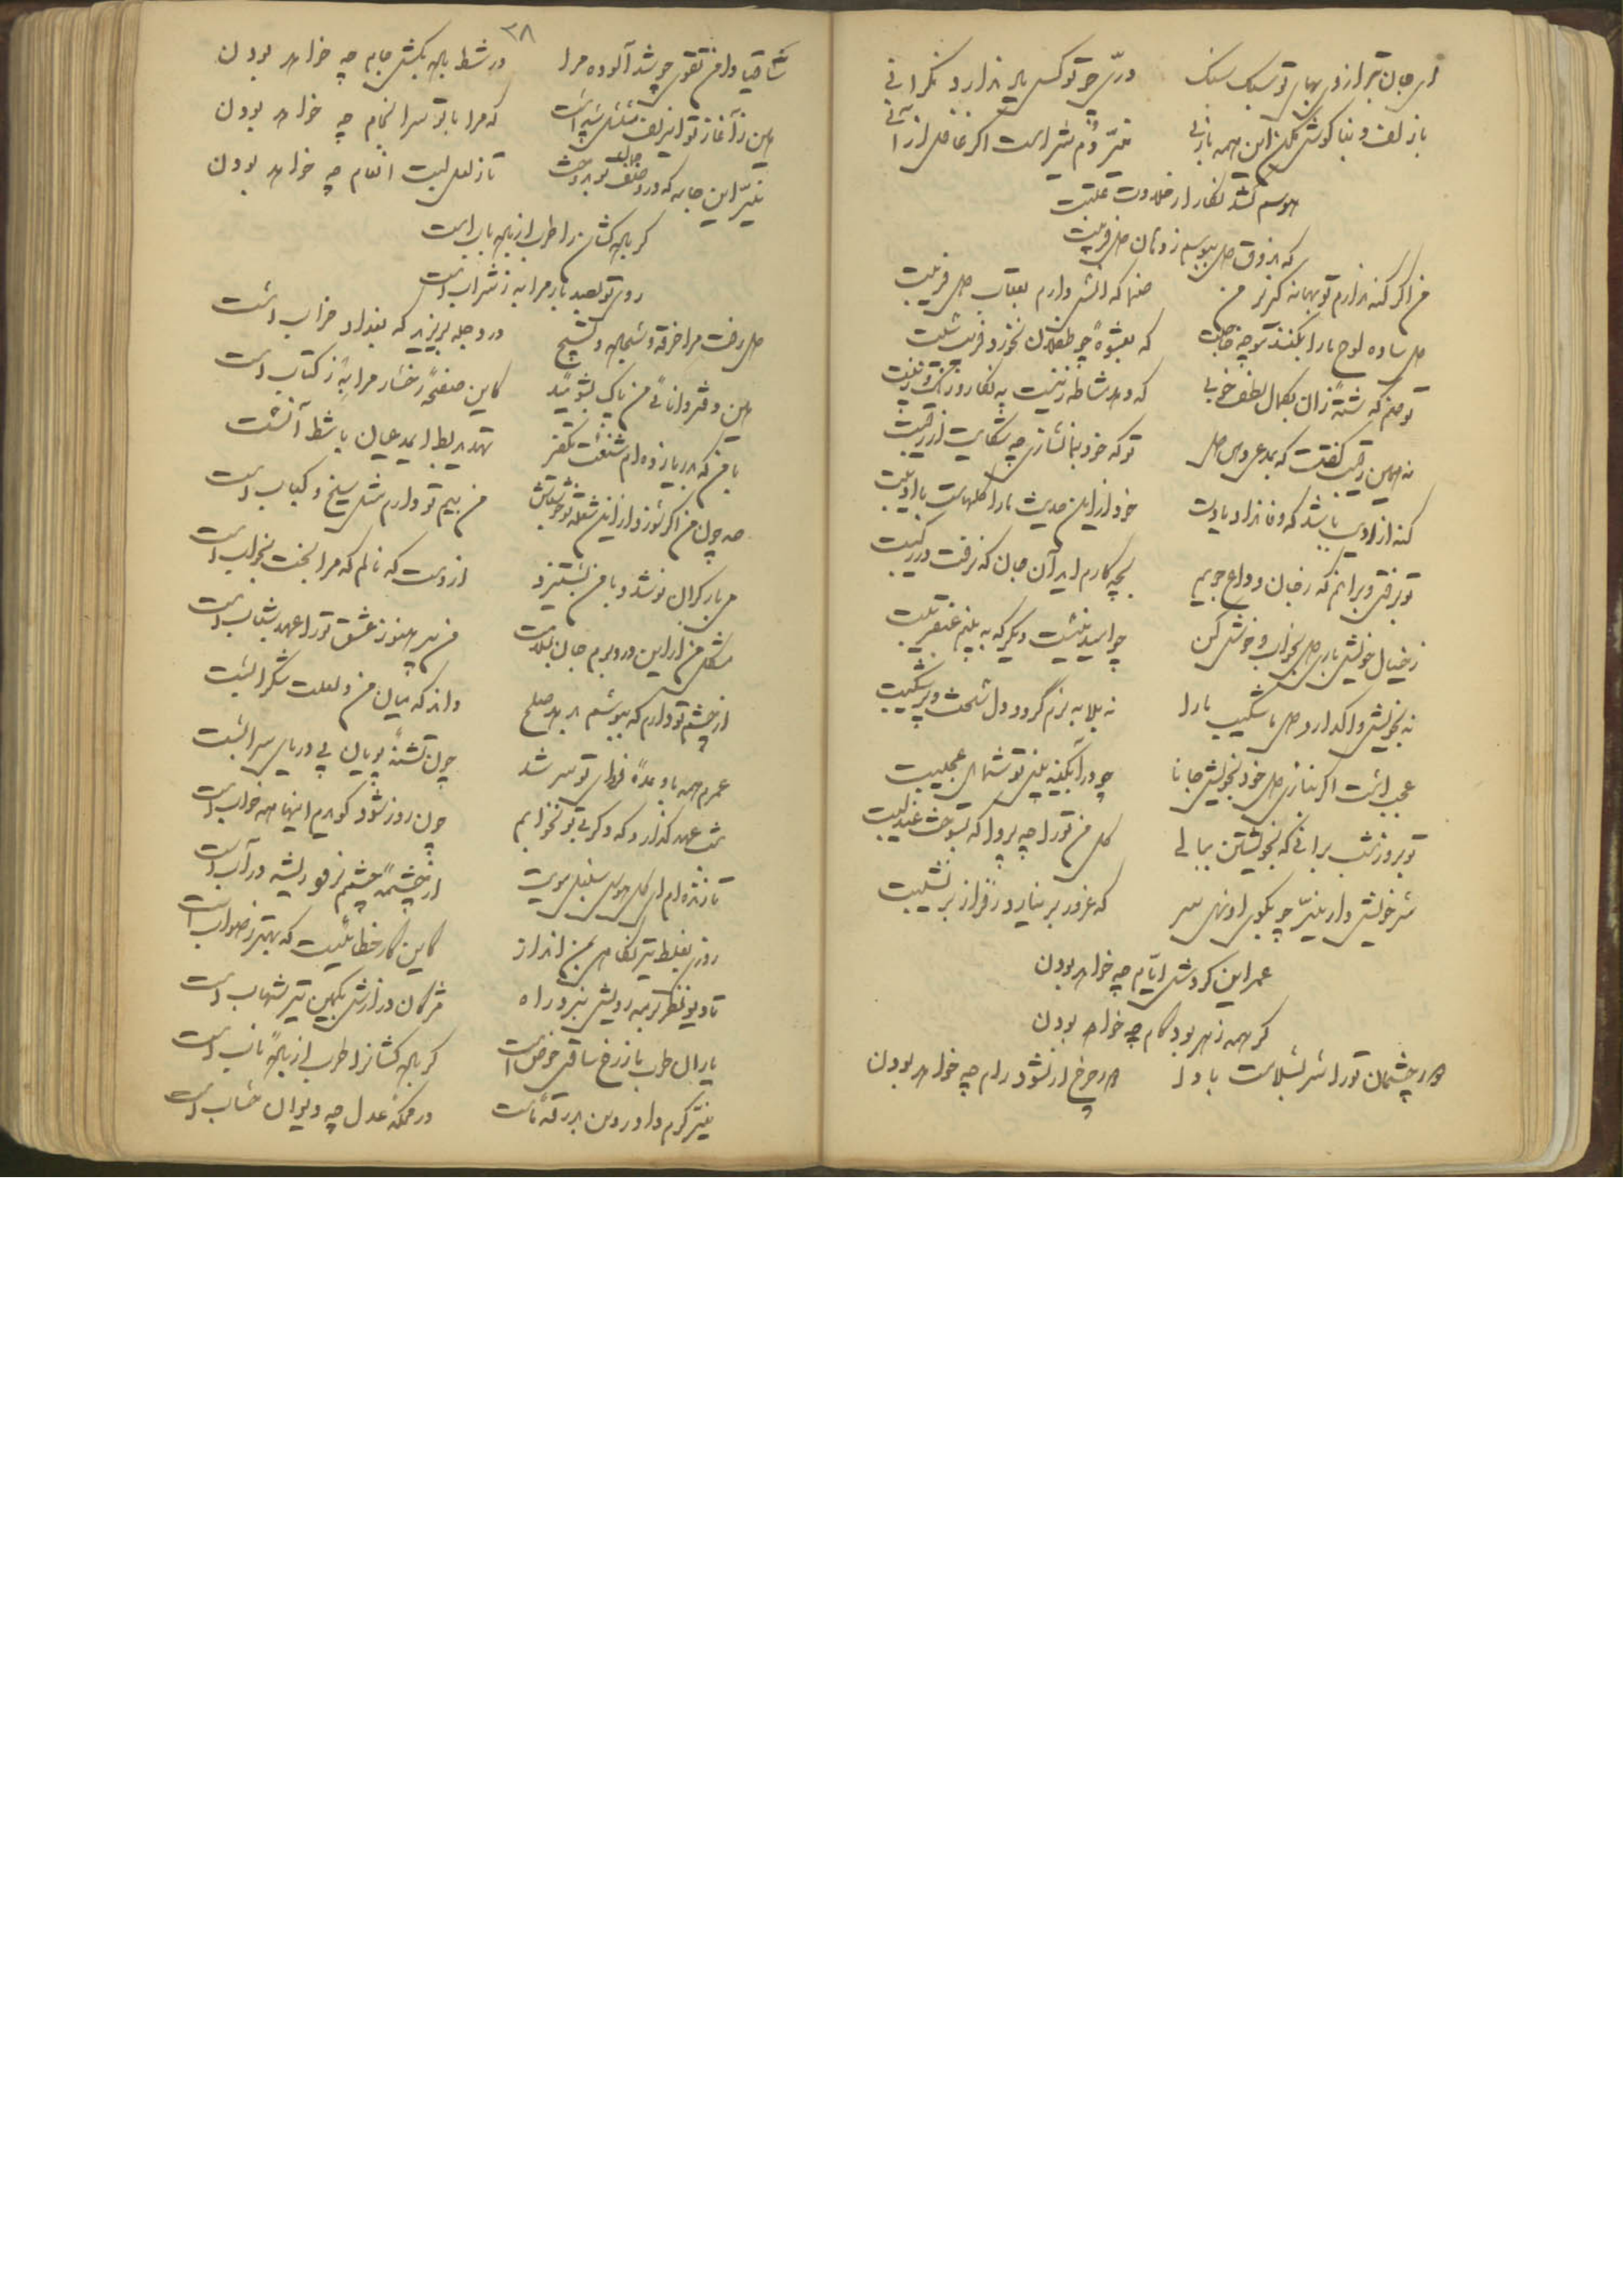 ای جان تو از دل بهای تو سبک سنگ در سر چو تو کس باید ندارد نگرانی
با زلف و بناگوش مکن این همه بازی نیّر دم شیر است اگر غافل از آنی
هوسم کشد نگارا ز حلاوت عتیبت
که بذوق دل ببوسم ز دهان دلفریبت
من اگر گنه ندارم تو بهانه گیر بر من صنما که گوش دارم بعتاب دلفریبت
دل ساده لوح ما را بکمند تو چه حاجت که بعشوه چو طفلان نخورد فریب سیبت
تو صنم که شسته زان بکمال لطف و خوبی که دهد مشاطه زینت به نگار و رنگ و زیبت
نه همین رقیب گفتت که بدعوی دل تو که خود بما نسازی چه شکایت از رقیبت
گنه از ادیب باشد که وفا نداد یادت خود از این حدیث ما را گلهاست با ادیبت
تو برفتی و برانم که ز جان وداع جویم بچه کارم آید آن جان که نرفت در رکیبت
ز خیال خویش باری دل بخواب و خوش کن چو امید نیست دیگر که به بینم عنقریبت
نه بخویش واگذارد دل ناشکیب ما را نه بلابه نرم گردد دل سخت پر شکیبت
عجب است اگر نبازی دل خود بخویش جانا چو در آبگینه بینی تو شمایل عجیبت
تو بروز شب برانی که بخویشتن ببالی گل من تو را چه پروا که بسوخت عندلیبت
سر خویش دار نیّر چو بکوی او نهی سر که غرور بر نیارد ز فراز بر نشیبت
عمر این گردش ایّام چه خواهد بودن
گر همه زهر بود کام چه خواهد بودن
دور چشمان تو را سر بسلامت بادا دور چرخ ار نشود رام چه خواهد بودن
۳۸
ساقیا دامن تقوی چو شد آلوده مرا در شط باده بکش جامه چه خواهد بودن
من ز آغاز تو ای زلف مسلسل پیداست که مرا با تو سرانجام چه خواهد بودن
نیّر این جامه که در وصف جمالت بردوخت تا ز لعل لبت انعام چه خواهد بودن
گر باده کشان را طرب از باده ناب است
روی تو بصد بار مرا به ز شراب است
دل رخت مرا خرقه و سجاده و تسبیح در دجله بریزید که بغداد خراب است
این دفتر دانائی من پاک بشوئید کاین صفحهٔ رخسار مرا به ز کتاب است
با من که بدریا زده‌ام شنعت تکفیر تهدید بط ای مدعیان با شط آبست
صد چون من اگر سوزد از این شعله نو خویش من بیم تو دارم مثل سیخ و کباب است
می با دگران نوشد و با من بستیزد از دست که نالم که مرا بخت بخواب است
مشکل من از این درد برم جان بسلامت من پیر هنوز عشق تو را عهد شباب است
از چشم تو دارم که بپوشم بدهد صلح داند که میان من و لعلت شکرآبست
عمرم همه با وعدهٔ فردای تو سر شد چون تشنه پویان پی دریای سرابست
شب عهد گذارد که دگر بی تو نخوابم چون روز شود گویدم اینها همه خوابست
تا زنده‌ام ای گل هوس سنبل مویت از چشمهٔ چشمم نرود ریشه در آب است
روزی بغلط تیر نگاهی بمن انداز کاین کار خطا نیست که بهتر ز صوابست
تا دیو نظر ره برویش نبرد راه مژگان درازش بکمین تیر شهاب است
یاران طرب ما ز رخ ساقی حوض است گر باده کشانرا طرب از بادهٔ ناب است
نیّر کرم داور دین بدرقهٔ ماست در محکمهٔ عدل چه دیوان حساب است